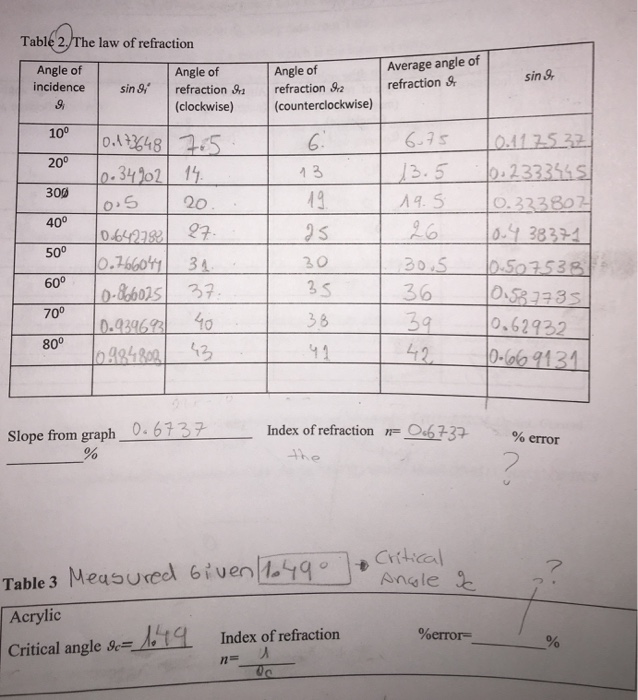 Table 2. The law of refraction
Angle of incidence 𝜗ᵢ | sin 𝜗ᵢ' | Angle of refraction 𝜗r1 (clockwise) | Angle of refraction 𝜗r2 (counterclockwise) | Average angle of refraction 𝜗r | sin 𝜗r
10⁰ 0.173648 7.5 6. 6.75 0.117537
20⁰ 0.34202 14. 13 13.5 0.2333445
30⁰ 0.5 20. 19 19.5 0.333807
40⁰ 0.642788 27. 25 26 0.438371
50⁰ 0.766044 31. 30 30.5 0.507538
60⁰ 0.866025 37. 35 36 0.587785
70⁰ 0.939693 40 38 39 0.62932
80⁰ 0.984808 43 41 42 0.669131
Slope from graph 0.6737 Index of refraction n= 0.6737 % error
% the ?
Table 3 Measured Given 1.49° → Critical Angle 𝜗c ?
Acrylic
Critical angle 𝜗c= 1.49 Index of refraction %error= %
n= 1/θc